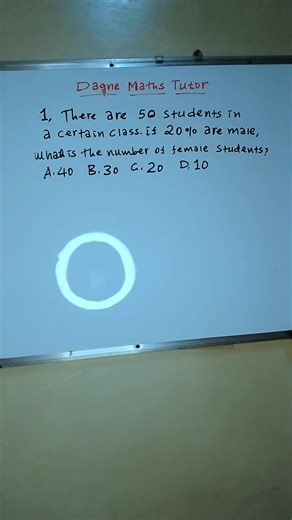 Dagne Maths Tutor
1, There are 50 students in
a certain class. if 20% are male,
what is the number of female students?
A.40 B.30 C.20 D.10